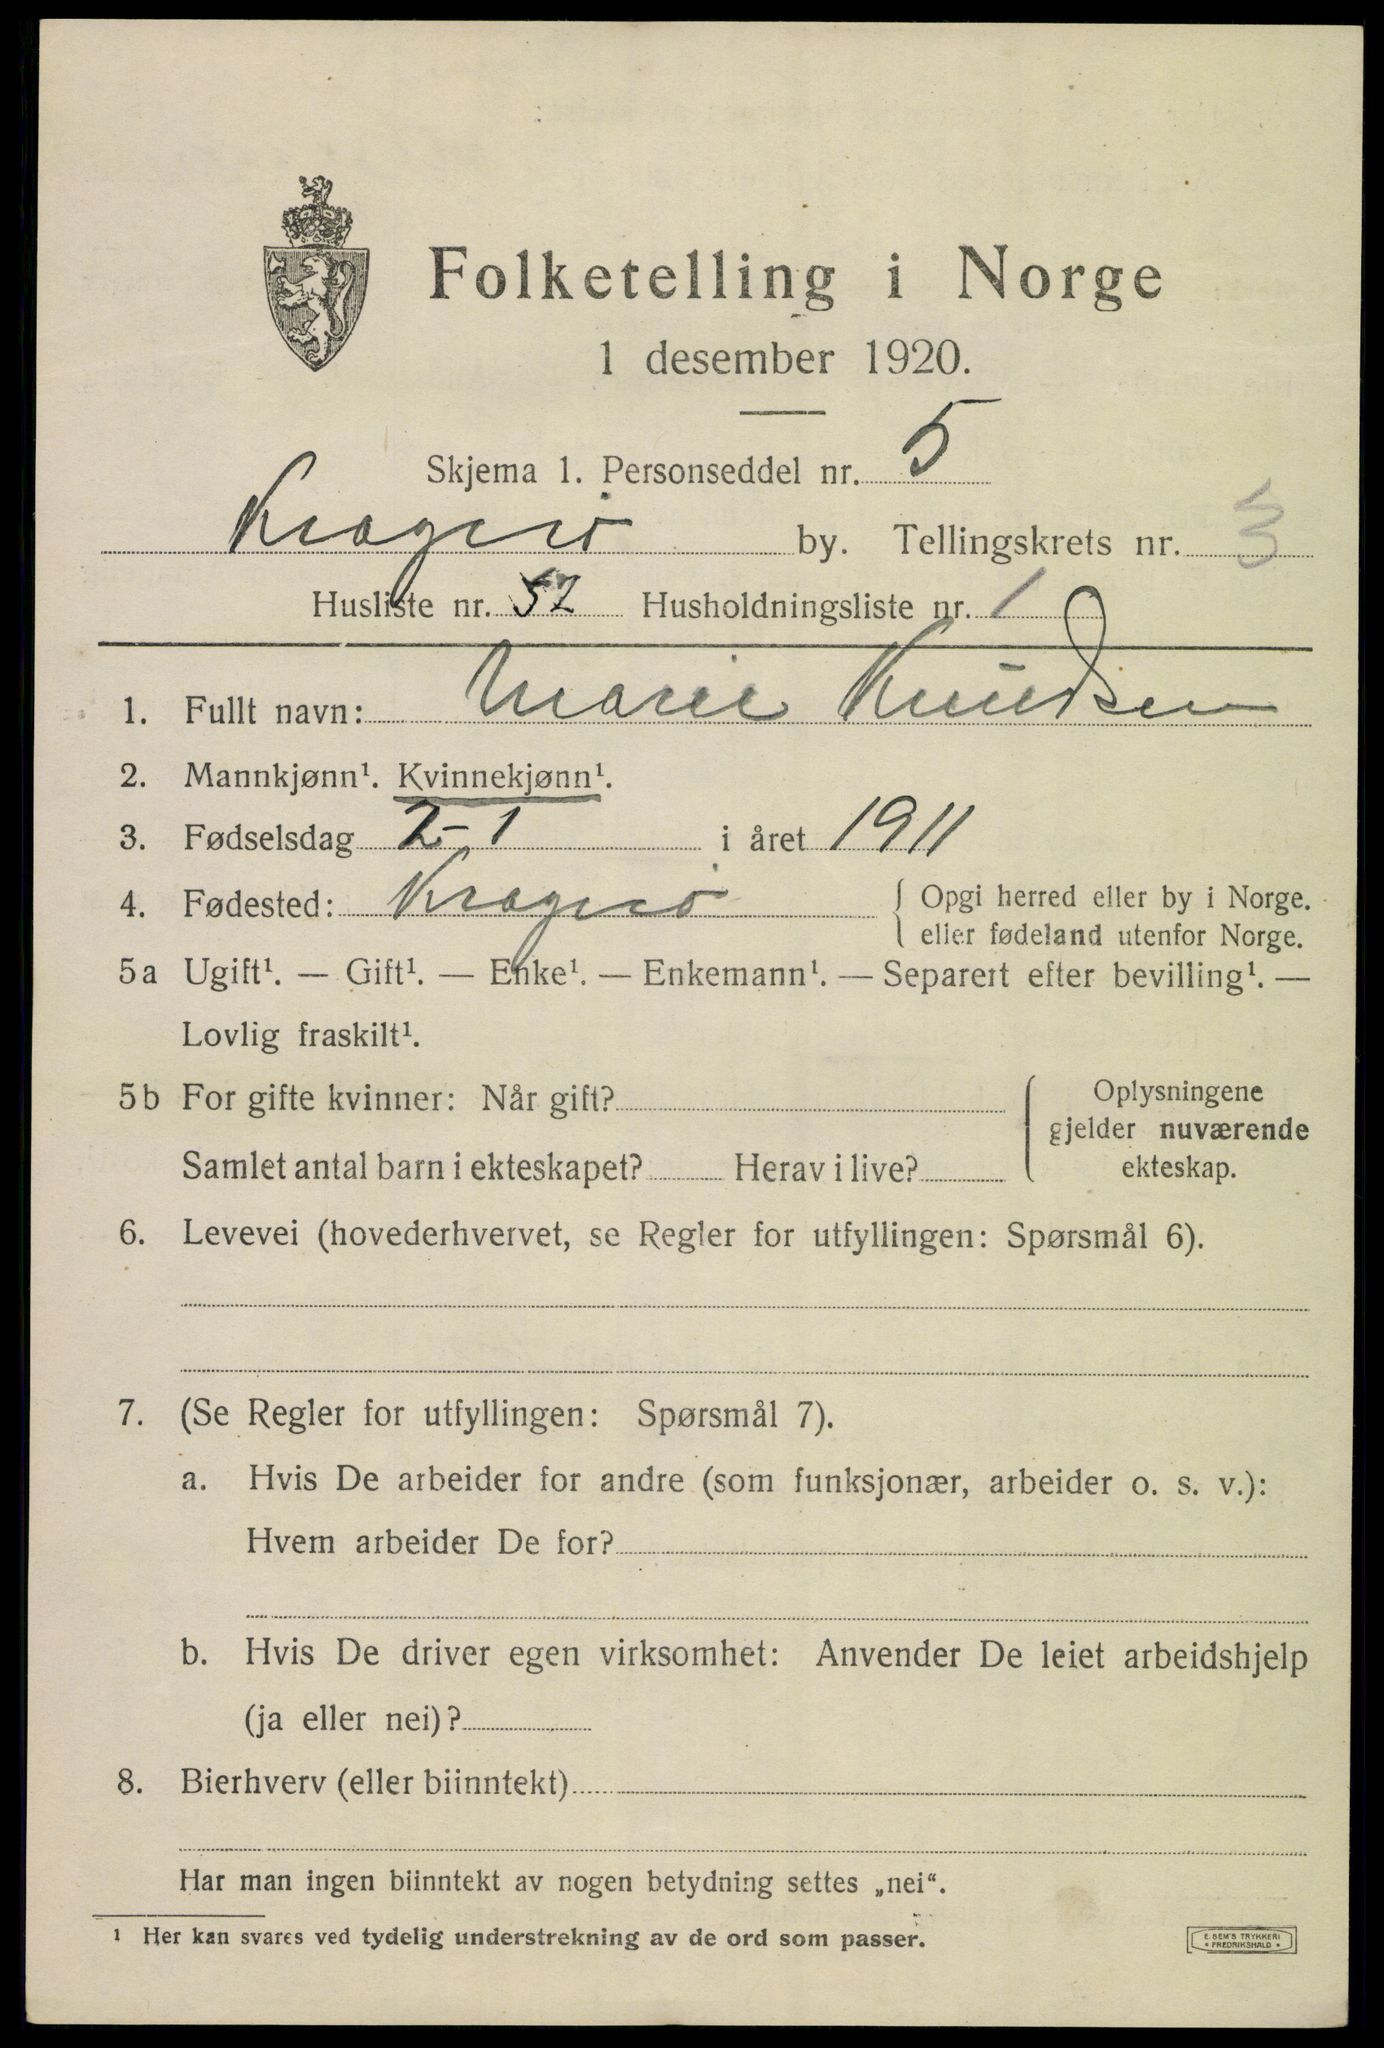 Folketelling i Norge
1 desember 1920.
Skjema 1. Personseddel nr. 5
Kragerö by. Tellingskrets nr. 3
Husliste nr. 52 Husholdningsliste nr. 1
1. Fullt navn: Marie Knudsen
2. Mannkjønn¹. Kvinnekjønn¹.
3. Fødselsdag 2-1 i året 1911
4. Fødested: Kragerö { Opgi herred eller by i Norge.
eller fødeland utenfor Norge.
5a Ugift¹. — Gift¹. — Enke¹. — Enkemann¹. — Separert efter bevilling¹. —
Lovlig fraskilt¹.
5b For gifte kvinner: Når gift? Oplysningene
gjelder nuværende
Samlet antal barn i ekteskapet? Herav i live? ekteskap.
6. Levevei (hovederhvervet, se Regler for utfyllingen: Spørsmål 6).
7. (Se Regler for utfyllingen: Spørsmål 7).
a. Hvis De arbeider for andre (som funksjonær, arbeider o. s. v.):
Hvem arbeider De for?
b. Hvis De driver egen virksomhet: Anvender De leiet arbeidshjelp
(ja eller nei)?
8. Bierhverv (eller biinntekt)
Har man ingen biinntekt av nogen betydning settes „nei“.
¹ Her kan svares ved tydelig understrekning av de ord som passer.
E. SEM'S TRYKKERI
• FREDRIKSHALD •